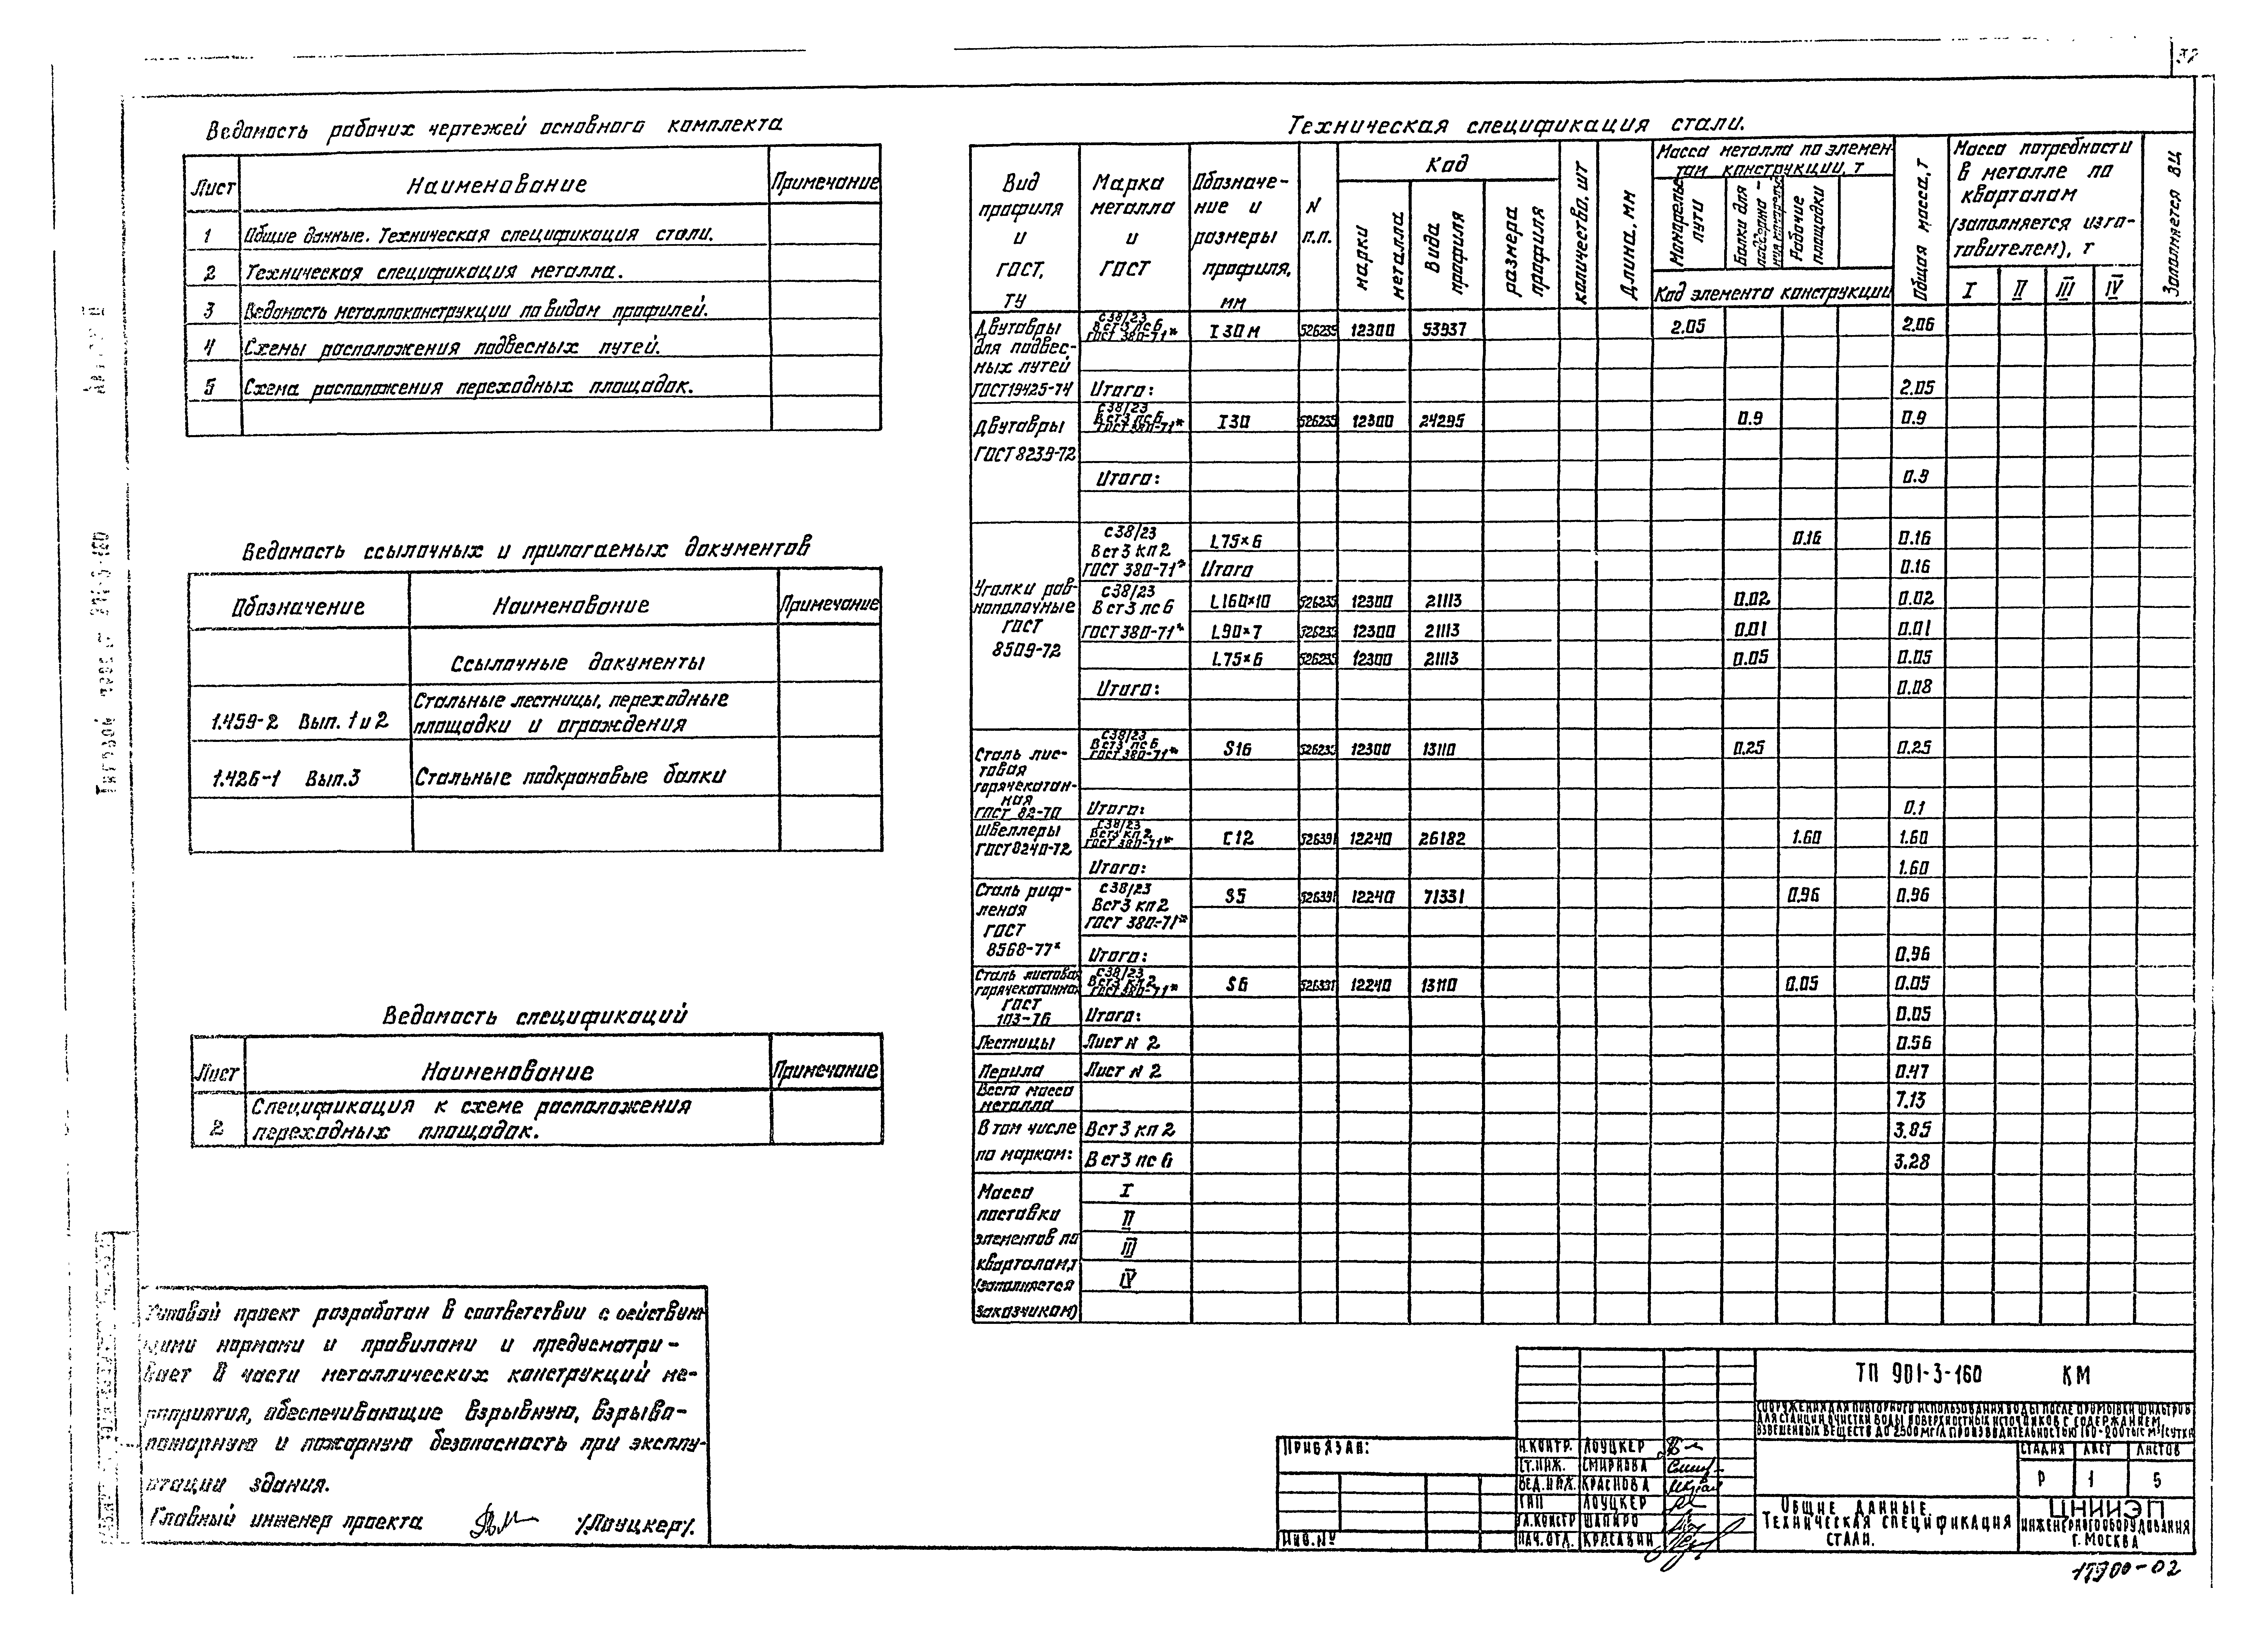 32
Ведомость рабочих чертежей основного комплекта
Лист Наименование Примечание
1 Общие данные. Техническая спецификация стали.
2 Техническая спецификация металла.
3 Ведомость металлоконструкции по видам профилей.
4 Схемы расположения подвесных путей.
5 Схема расположения переходных площадок.
Ведомость ссылочных и прилагаемых документов
Обозначение Наименование Примечание
Ссылочные документы
1.459-2 Вып. 1 и 2 Стальные лестницы, переходные
площадки и ограждения
1.426-1 Вып.3 Стальные подкрановые балки
Ведомость спецификаций
Лист Наименование Примечание
2 Спецификация к схеме расположения
переходных площадок.
Типовой проект разработан в соответствии с действую-
щими нормами и правилами и предусматри-
вает в части металлических конструкций ме-
роприятия, обеспечивающие взрывную, взрыво-
пожарную и пожарную безопасность при эксплу-
атации здания.
Главный инженер проекта /Лоуцкер/.
Техническая спецификация стали.
Вид
профиля
и
ГОСТ,
ТУ
Марка
металла
и
ГОСТ
Обозначе-
ние и
размеры
профиля,
мм
N
п.п.
Код
марки
металла
Вида
профиля
размера
профиля
количество, шт
Длина, мм
Масса металла по элемен-
там конструкции, т
Монорельс
пути
Балки для
Рабочие
площадки
Код элемента конструкции
Общая масса, т
Масса потребности
в металле по
кварталам
(заполняется изго-
товителем), т
I II III IV
Заполняется ВЦ
Двутавры
для подвес-
ных путей
ГОСТ19425-74
С38/23
Вст3 пс6
ГОСТ 380-71*
I30м 526235 12300 53937 2.05 2.06
Итого: 2.05
Двутавры
ГОСТ8239-72
С38/23
Вст3 пс6
ГОСТ 380-71*
I30 526235 12300 24295 0.9 0.9
Итого: 0.9
Уголки рав-
нополочные
ГОСТ
8509-72
С38/23
Вст3 кп2
ГОСТ 380-71*
L75×6 0.16 0.16
Итого 0.16
С38/23
Вст3 пс6
ГОСТ380-71*
L160×10 526235 12300 21113 0.02 0.02
L90×7 526235 12300 21113 0.01 0.01
L75×6 526235 12300 21113 0.05 0.05
Итого: 0.08
Сталь лис-
товая
горячекатан-
ная
ГОСТ 82-70
С38/23
Вст3 пс6
ГОСТ 380-71*
S16 526235 12300 13110 0.25 0.25
Итого: 0.1
Швеллеры
ГОСТ8240-72
С38/23
Вст3 кп2
ГОСТ 380-71*
С12 526391 12240 26182 1.60 1.60
Итого: 1.60
Сталь риф-
леная
ГОСТ
8568-77*
С38/23
Вст3 кп2
ГОСТ 380-71*
S5 526391 12240 71331 0.96 0.96
Итого: 0.96
Сталь листовая
горячекатанная
ГОСТ
103-76
С38/23
Вст3 кп2
ГОСТ 380-71*
S6 526391 12240 13110 0.05 0.05
Итого: 0.05
Лестницы Лист N 2 0.56
Перила Лист N 2 0.47
Всего масса
металла 7.13
В том числе Вст3 кп2 3.85
по маркам: Вст3 пс6 3.28
Масса
поставки
элементов по
кварталам, т
(заполняется
заказчиком)
I
II
III
IV
ТП 901-3-160 КМ
Сооружения для повторного использования воды после промывки фильтров
для станции очистки воды поверхностных источников с содержанием
взвешенных веществ до 2500 мг/л производительностью 160-200 тыс м³/сутки
Привязан:
Инв.№
Н.контр. Лоуцкер
Ст.инж. Смирнова
Вед.инж. Краснова
ГИП Лоуцкер
Гл.констр Шапиро
Нач.отд. Красавин
Стадия Лист Листов
Р 1 5
Общие данные.
Техническая спецификация
стали.
ЦНИИЭП
инженерного оборудования
г. Москва
17900-02